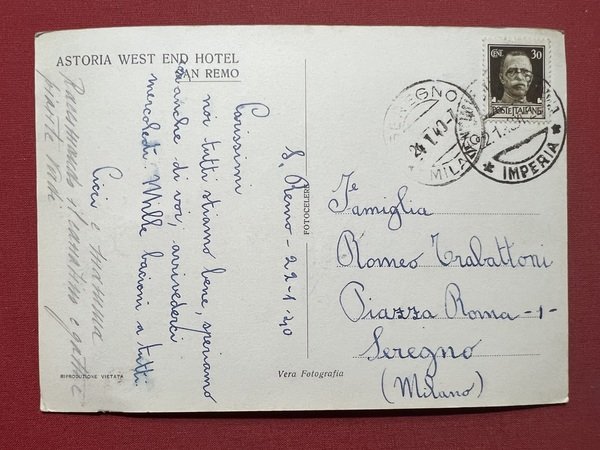 ASTORIA WEST END HOTEL
SAN REMO
S. Remo - 22-1-40
Carissimi
noi tutti stiamo bene, speriamo
anche di voi, arrivederci
mercoledì. Mille bacioni a tutti
Cicci e mamma
Raccomando il canarino e
piante verdi
RIPRODUZIONE VIETATA
FOTOCELERE
Vera Fotografia
CENT. 30
POSTE ITALIANE
SEREGNO
24.1.40
MILANO
IMPERIA
Famiglia
Romeo Trabattoni
Piazza Roma -1-
Seregno
(Milano)